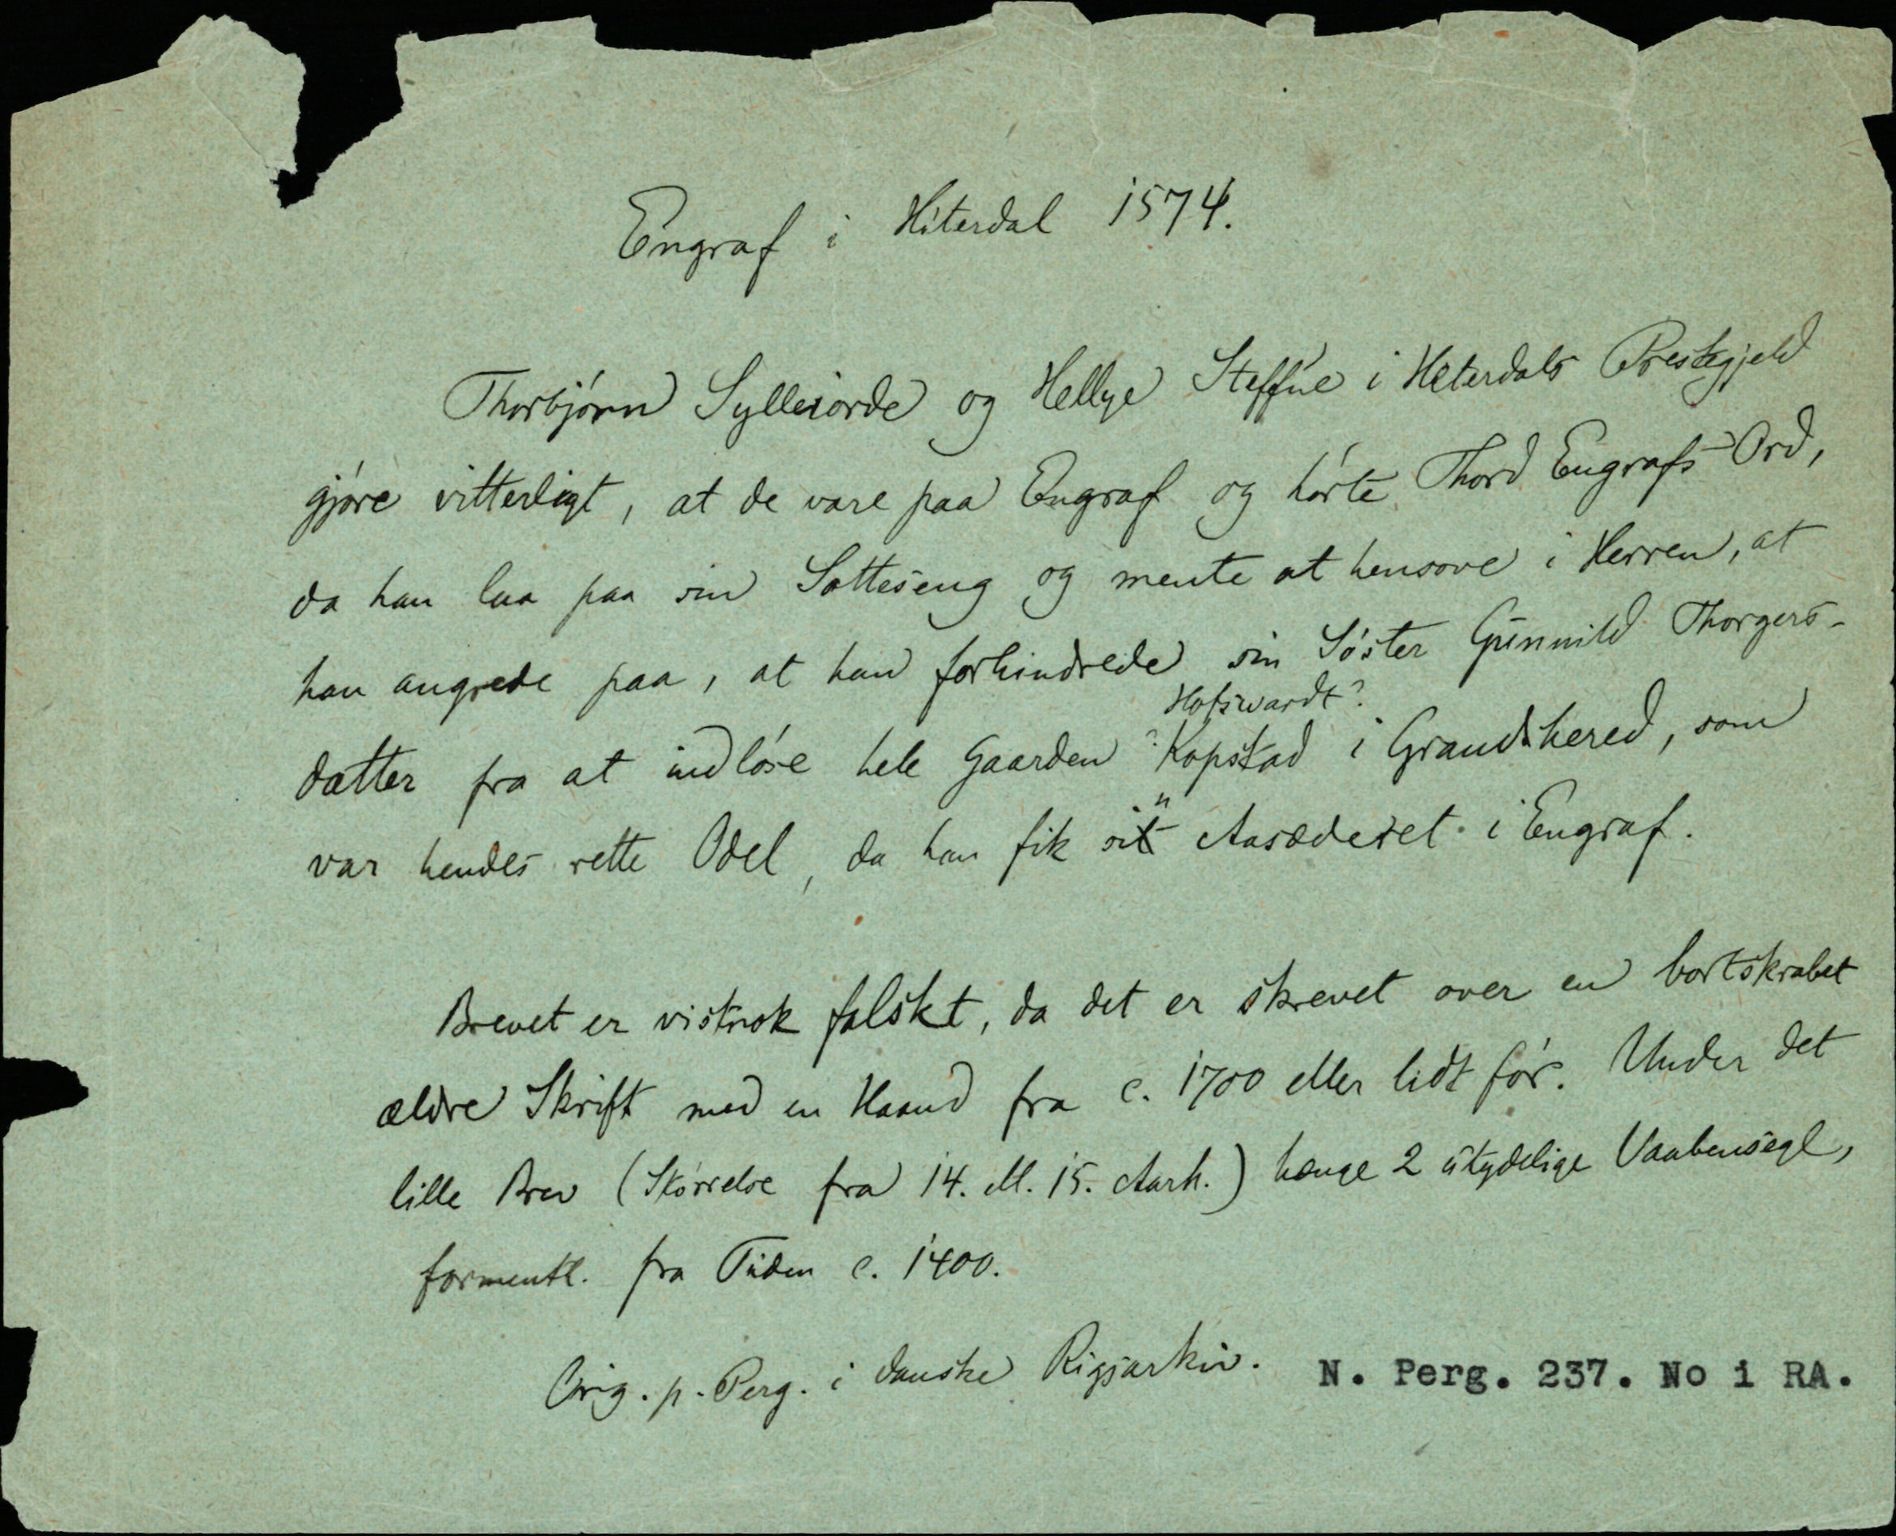 Engraf i Hiterdal 1574.
Thorbjørn Sylleiorde og Hellye Steffne i Heterdals Prestegjeld
gjøre vitterligt, at de vare paa Engraf og hørte Thord Engrafs Ord,
da han laa paa sin Sotteseng og mente at hensove i Herren, at
han angrede paa, at han forhindrede sin Søster Gunnild Thorgers-
Hofswardt?
datter fra at indløse hele Gaarden ? Kopstad i Grandshered, som
var hendes rette Odel, da han fik sin Aasæderet i Engraf.
Brevet er vistnok falskt, da det er skrevet over en bortskrabet
ældre Skrift med en Haand fra c. 1700 eller lidt før. Under det
lille Brev (Størrelse fra 14. ell. 15. Aarh.) hænge 2 utydelige Vaabensegl,
formentl. fra Tiden c. 1400.
Orig. p. Perg. i danske Rigsarkiv. N. Perg. 237. No i RA.